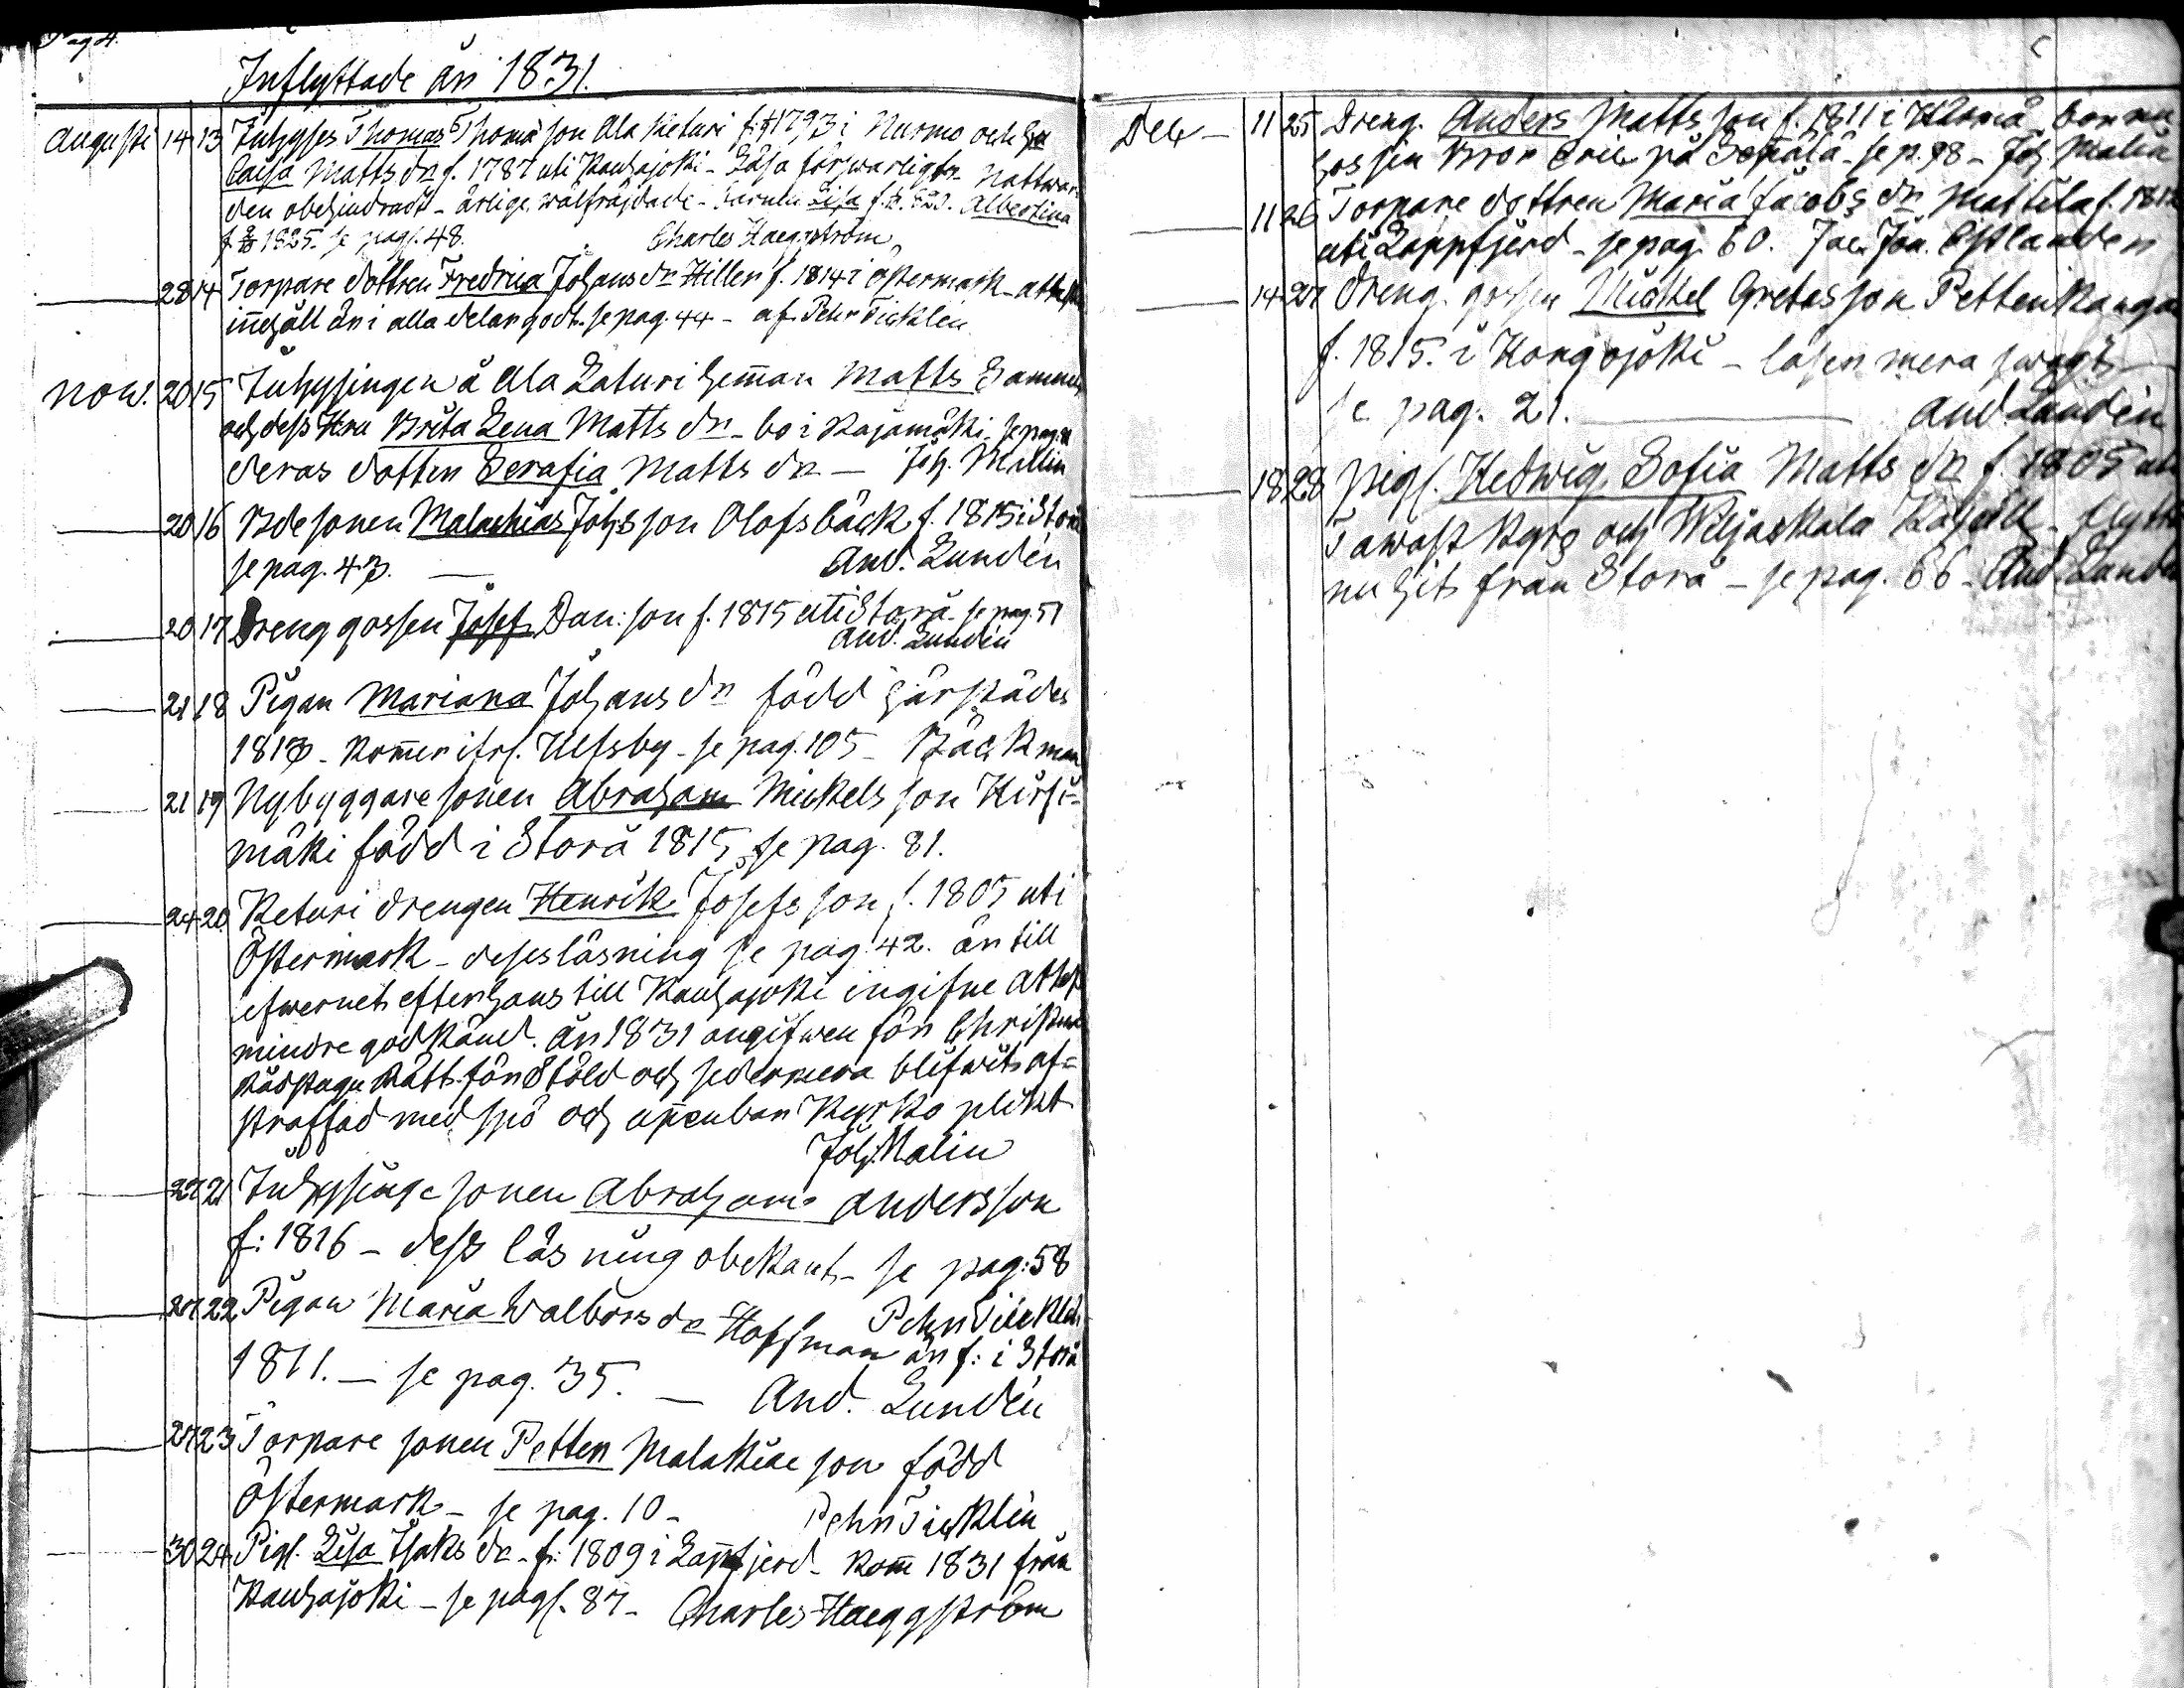 Pag 4.
Inflyttade år 1831.
Augusti 14 13 Inhyses Thomas Thomasson Ala Keturi f. 1793 i Nurmo och
Caisa Matts dr f. 1787 uti Kauhajoki - Läsa försvarligen Nattwar-
den obehindradt - ärlige, wälfräjdade - barnen Lisa Albertina
f. 1825. se pag. 48. Charles Haeggström
28 14 Torpare dottren Fredrica Johans dr Hiller f. 1814 i Östermark
innehåll är i alla delar godt. se pag. 44 - af Pehr Ticklén
Nov. 20 15 Inhysingen å Ala Laturi hemman Matts
och dess Hru Brita Lena Matts dr - bo i Kajamäki - se pag.
deras dotter Serafia Matts dr - Joh. Malin
20 16 Bdesonen Malachias Johsson Olofsbäck f. 1815 i Storå
se pag. 43. - And. Lundén
20 17 Drenggossen Josef Dan: son f. 1815 uti Storå - se pag. 51
And. Lundén
21 18 Pigan Mariana Johans dr född härstädes
1813 - kommer ifrå. Ulfsby - se pag. 105 - Bäckman
21 19 Nybyggaresonen Abraham Mickelsson Kirsi-
mäki född i Storå 1815, se pag. 81.
24 20 Keturi drengen Henrik Josefsson f. 1805 uti
Östermark - dess läsning se pag. 42. är till
lefwernet efter hans till Kauhajoki ingifne
mindre godkänd. år 1831 angifwen för
Rätt för Stöld och sedermera blifwit af-
straffad med spö och uppenbar Kyrko plikt
Joh. Malin
27 21 Inhysinge sonen Abraham Andersson
f: 1816 - dess läsning obekant - se pag: 58
Pehr Ticklén
27 22 Pigan Maria Walbors dr Hoffman är f: i Storå
1811. - se pag. 35. - And. Lundén
27 23 Torpare sonen Petter Malakiae son född
Östermark - se pag. 10 - Pehr Ticklén
30 24 Pig. Lisa Isaks dr - f: 1809 i Lappfjerd - kom 1831 från
Kauhajoki - se pag. 87 - Charles Haeggström
Dec - 11 25 Dreng. Anders Mattsson f. 1811 i bor nu
hos sin Bror Eric på - se p. 98 - Joh. Malin
11 26 Torpare dottren Maria Jacobs dr Mattila f. 1812
uti Lappfjerd - se pag. 60. Jac. Joh. Estlander
14 27 Dreng gossen Mickel Gretasson Pettenkangas
f. 1815. i Kongojoki - läsen mera swagt
se pag. 21. And. Lundén
18 28 Pig. Hedwig Sofia Matts dr f. 1805 uti
Tawast Kyrö och Wiljakkala Kapell - flytta
nu hit från Storå - se pag. 66 - And. Lundén